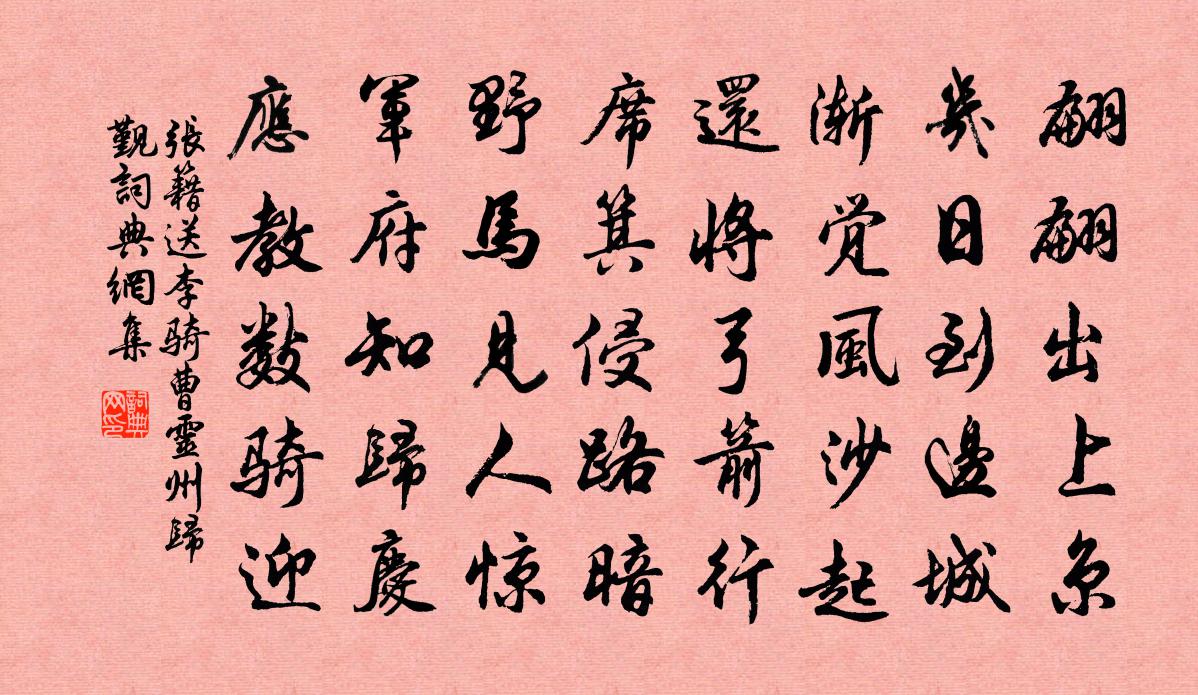 翩翩出上京
幾日到邊城
漸觉風沙起
還將弓箭行
席箕侵路暗
野馬見人惊
軍府知歸慶
應教数骑迎
張籍送李骑曹靈州歸
覲詞典網集
詞典网印